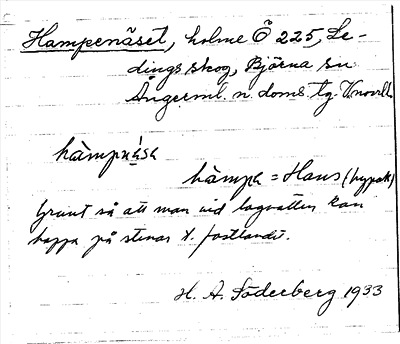 Hampenäset, holme Ö 225, Le-
dingsskog, Björna sn
Ångerml. n. doms. tg. V.norrl.
hàmpnä̀sə
hàmpə = Hans (hypok)
Grunt så att man vid lågvatten kan
hoppa på stenar t. fastlandet.
H. A. Söderberg 1933